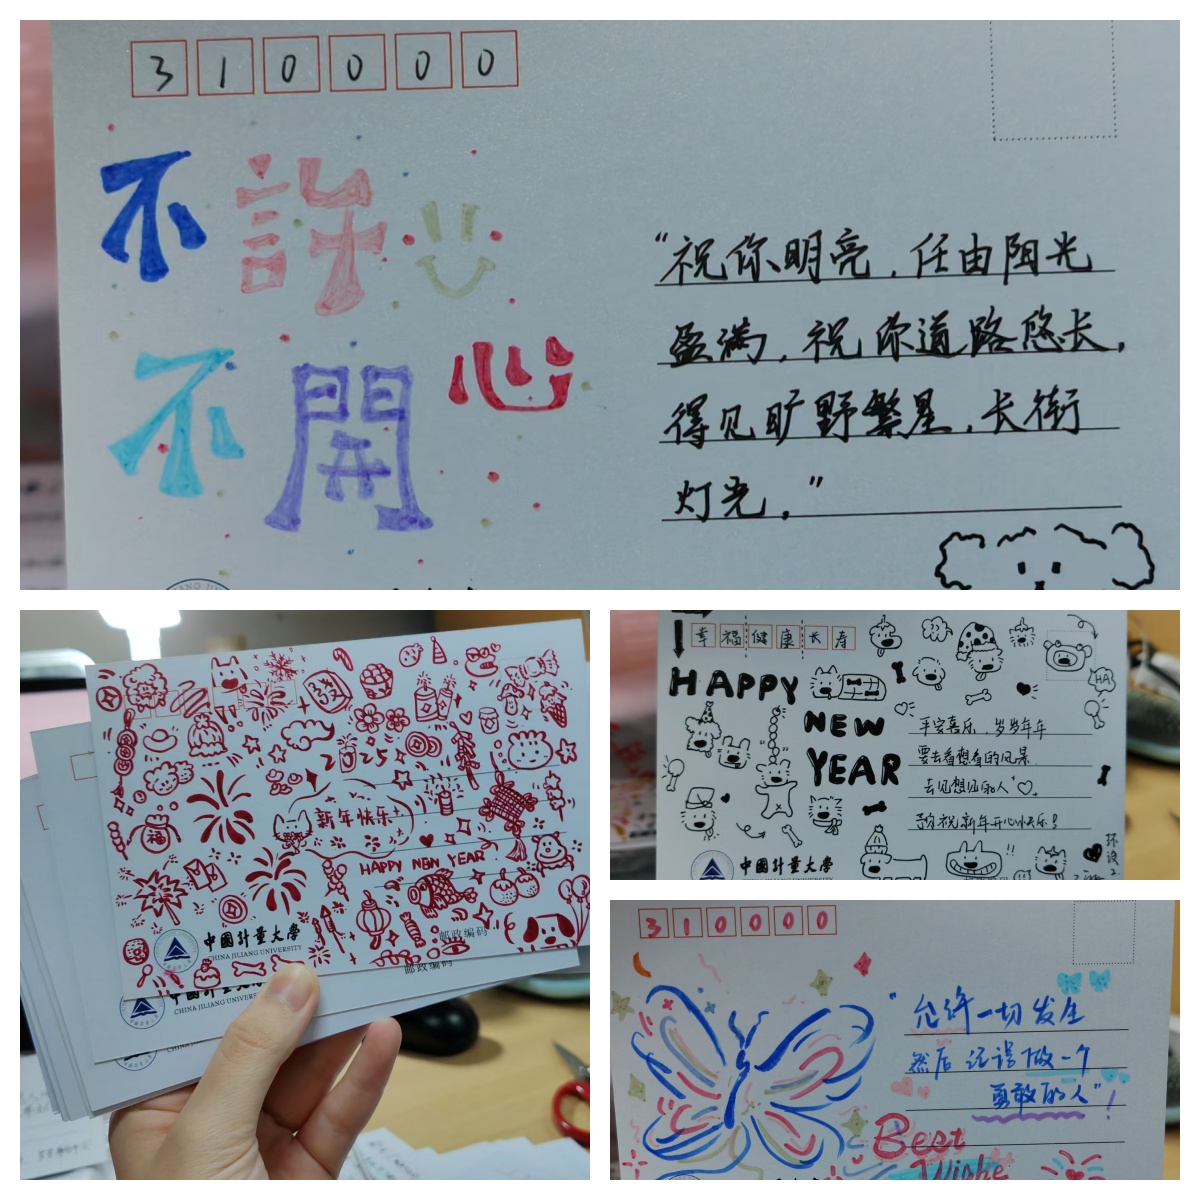 310000
不許
不開心
“祝你明亮，任由阳光
盈满，祝你道路悠长，
得见旷野繁星，长街
灯光。”
2025
新年快乐
HAPPY NEW YEAR
福
中國計量大學
CHINA JILIANG UNIVERSITY
邮政编码
邮政编码
CHINA JILIANG UNIVERS
幸福健康长寿
HAPPY
NEW
YEAR
HA
平安喜乐，岁岁年年
要去看想看的风景
去见想见的人
祝新年开心快乐！
中國計量大學
310000
“允许一切发生
然后 记得做一个
勇敢的人”！
Best
Wishe